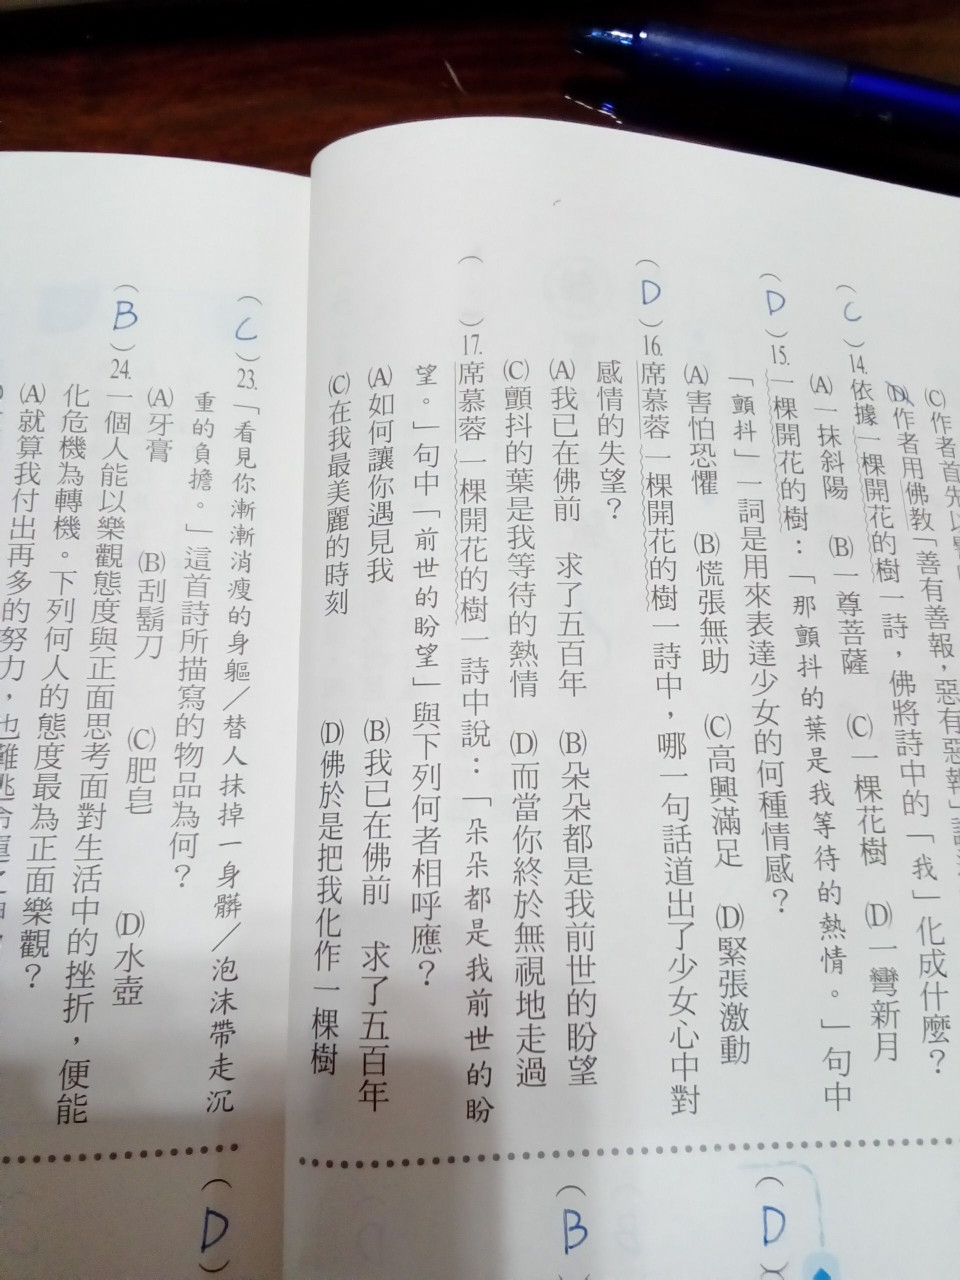 (C)作者首先以
(D)作者用佛教「善有善報，惡有惡報」
(C)14.依據一棵開花的樹一詩，佛將詩中的「我」化成什麼？
(A)一抹斜陽 (B)一尊菩薩 (C)一棵花樹 (D)一彎新月
(D)15.一棵開花的樹：「那顫抖的葉是我等待的熱情。」句中
「顫抖」一詞是用來表達少女的何種情感？
(A)害怕恐懼 (B)慌張無助 (C)高興滿足 (D)緊張激動
(D)16.席慕蓉一棵開花的樹一詩中，哪一句話道出了少女心中對
感情的失望？
(A)我已在佛前 求了五百年 (B)朵朵都是我前世的盼望
(C)顫抖的葉是我等待的熱情 (D)而當你終於無視地走過
( )17.席慕蓉一棵開花的樹一詩中說：「朵朵都是我前世的盼
望。」句中「前世的盼望」與下列何者相呼應？
(A)如何讓你遇見我 (B)我已在佛前 求了五百年
(C)在我最美麗的時刻 (D)佛於是把我化作一棵樹
(C)23.「看見你漸漸消瘦的身軀／替人抹掉一身髒／泡沫帶走沉
重的負擔。」這首詩所描寫的物品為何？
(A)牙膏 (B)刮鬍刀 (C)肥皂 (D)水壺
(B)24.一個人能以樂觀態度與正面思考面對生活中的挫折，便能
化危機為轉機。下列何人的態度最為正面樂觀？
(A)就算我付出再多的努力，也難逃命運之神，
(D)
(B)
(D)